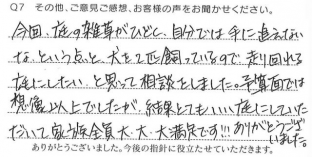 Q7 その他、ご意見ご感想、お客様の声をお聞かせください。
今回、庭の雑草がひどく、自分では手に追えない
な、という点と、犬を2匹飼っているので走り回れる
庭にしたい、と思って相談をしました。予算面では
想像以上でしたが、結果とてもいい庭にしていた
だいて家族全員大・大・大満足です!!! ありがとうござ
いました。
ありがとうございました。今後の指針に役立たせていただきます。